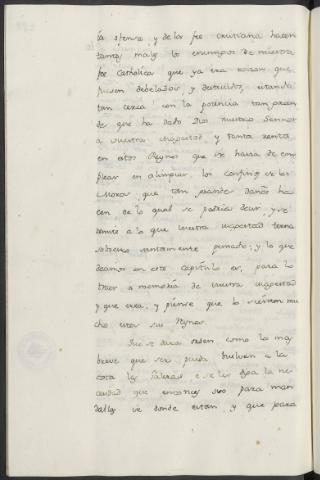 la ofensa, y de la fee cristiana hacen
tantos males los enemigos de nuestra
fee catholica que ya era razon que
fuesen debelados, y destruidos, estando
tan cerca con la potencia tan gran
de que ha dado Dios nuestro Señor
a vuestra magestad, y tanta renta
en estos Reynos que se havia de em
plear en alimpiar los confines de los
Moros que tan grande daño ha
cen de lo qual se podria decir, y se
remite a lo que vuestra magestad terna
sobre ello santamente pensado; y lo que
decimos en este capitulo es, para lo
traer a memoria de vuestra magestad
y que crea, y piense que lo sienten mu
cho estos sus Reynos.
Que se dara orden como la mas
breve que ser pueda buelvan a la
costa las Galeras e se les diga la ne
cesidad que entonces uvo para man
dallas ir donde estan, y que para